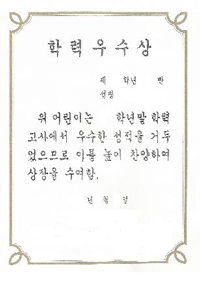 학력우수상
제 학년 반
성명
위 어린이는 학년말 학력
고사에서 우수한 성적을 거두
었으므로 이를 높이 찬양하여
상장을 수여함.
년 월 일